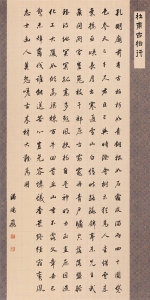 杜甫古柏行
孔明廟前有老柏柯如青銅根如石霜皮溜雨四十圍黛
色參天二千尺君臣已與時際會樹木猶為人愛惜雲
來氣接巫峽長月出寒通雪山白憶昨路繞錦亭東先主武
侯同閟宮崔嵬枝幹郊原古窈窕丹青戶牖空落落盤踞雖得
地冥冥孤高多烈風扶持自是神明力正直原因造化功大
廈如傾要梁棟萬牛回首丘山重不露文章世已
驚未辭翦伐誰能送苦心豈免容螻蟻香葉終經宿鸞
鳳志士幽人莫怨嗟古來材大難為用